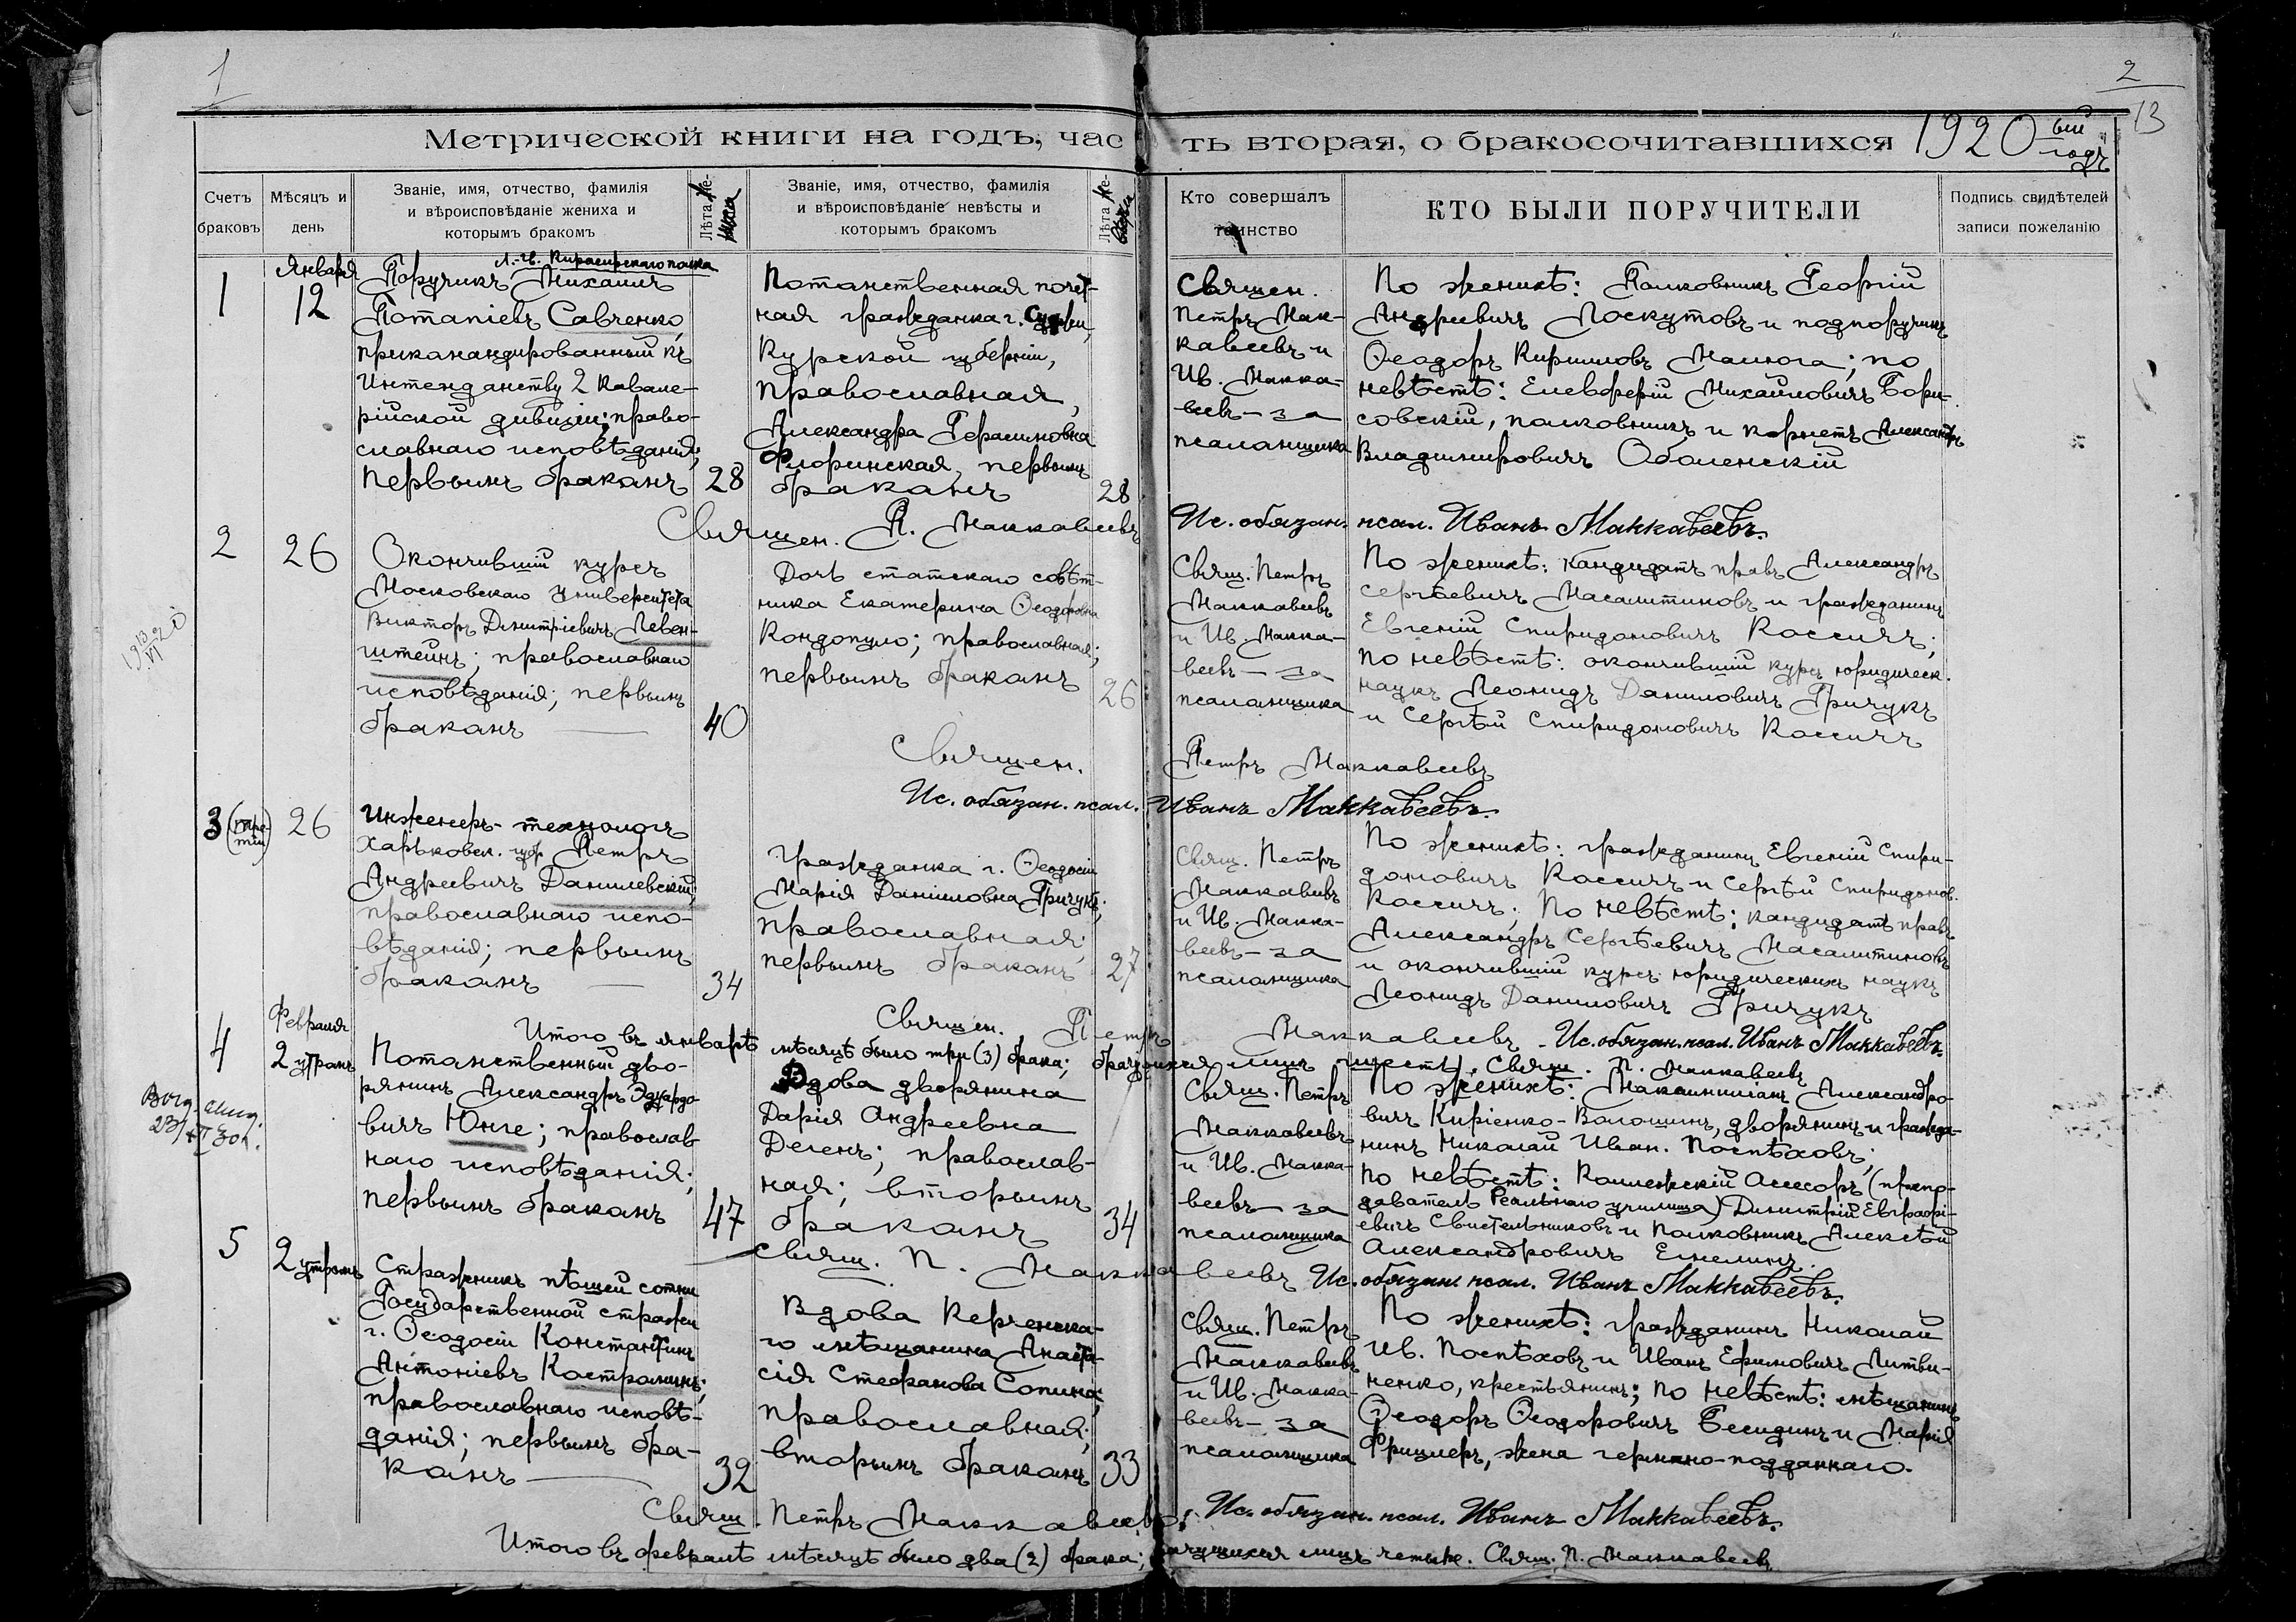 1
2
13
Метрической книги на годъ, часть вторая, о бракосочитавшихся 1920 ый годъ
Счетъ браковъ
Мѣсяцъ и день
Званіе, имя, отчество, фамилія
и вѣроисповѣданіе жениха и
которымъ бракомъ
Лѣта жениха
Званіе, имя, отчество, фамилія
и вѣроисповѣданіе невѣсты и
которымъ бракомъ
Лѣта
Кто совершалъ
таинство
КТО БЫЛИ ПОРУЧИТЕЛИ
Подпись свидѣтелей
записи пожеланію
1
Января
12
Л.-Гв. Кирасирскаго полка
Поручикъ Михаилъ
Потапіевъ Савченко,
прикомандированный къ
Интендантству 2 Кавале-
рійской дивизіи; право-
славнаго исповѣданія;
первымъ бракомъ
28
Потомственная почет-
ная гражданка г. Суджи,
Курской губерніи,
православная,
Александра Герасимовна
Флоринская, первымъ
бракомъ
28
Священ.
Петръ Мак-
кавеевъ и
Ив. Макка-
веевъ - за
псаломщика
По женихѣ: Полковникъ Георгій
Андреевичъ Лоскутовъ и подпоручикъ
Ѳеодоръ Кирилловъ Малюга; по
невѣстѣ: Елевферій Михайловичъ Бори-
совскій, полковникъ и корнетъ Александръ
Владимировичъ Оболенскій
Священ. П. Маккавеевъ
Ис. обязан. псал. Иванъ Маккавеевъ.
2
26
Окончившій курсъ
Московскаго Университета
Викторъ Димитріевичъ Левен-
штейнъ; православнаго
исповѣданія; первымъ
бракомъ
40
Дочь статскаго совѣт-
ника Екатерина Ѳеодоровна
Кондопуло; православная;
первымъ бракомъ
26
Свящ. Петръ
Маккавеевъ
и Ив. Макка-
веевъ - за
псаломщика
По женихѣ: кандидатъ правъ Александръ
Сергѣевичъ Масалитиновъ и гражданинъ
Евгеній Спиридоновичъ Коссичъ;
по невѣстѣ: окончившій курсъ юридическ.
наукъ Леонидъ Даниловичъ Гричукъ
и Сергѣй Спиридоновичъ Коссичъ
Священ. Петръ Маккавеевъ
Ис. обязан. псал. Иванъ Маккавеевъ.
3 (тре-
тій)
26
Инженеръ-технологъ
Харьковск. губ. Петръ
Андреевичъ Данилевскій;
православнаго испо-
вѣданія; первымъ
бракомъ
34
Гражданка г. Ѳеодосіи
Марія Даніиловна Гричукъ;
православная;
первымъ бракомъ
27
Свящ. Петръ
Маккавеевъ
и Ив. Макка-
веевъ - за
псаломщика
По женихѣ: гражданинъ Евгеній Спири-
доновичъ Коссичъ и Сергѣй Спиридонов.
Коссичъ. По невѣстѣ: кандидатъ правъ
Александръ Сергѣевичъ Масалитиновъ
и окончившій курсъ юридическихъ наукъ
Леонидъ Даниловичъ Гричукъ
Священ. Петръ Маккавеевъ - Ис. обязан. псал. Иванъ Маккавеевъ.
Итого въ январѣ мѣсяцѣ было три (3) брака; брачущихся лицъ шесть. Свящ. П. Маккавеевъ
4
Февраля
2 утромъ
Потомственный дво-
рянинъ Александръ Эдуардо-
вичъ Юнге; православ-
наго исповѣданія;
первымъ бракомъ
47
Вдова дворянина
Дарія Андреевна
Дегенъ; православ-
ная; вторымъ
бракомъ
34
Свящ. Петръ
Маккавеевъ
и Ив. Макка-
веевъ - за
псаломщика
По женихѣ: Максимиліанъ Александро-
вичъ Киріенко-Волошинъ, дворянинъ и гражда-
нинъ Николай Иван. Поспѣховъ;
по невѣстѣ: Коллежскій Ассесоръ (препо-
даватель Реальнаго училища) Димитрій Евграфі-
евичъ Свистельниковъ и Полковникъ Алексѣй
Александровичъ Емелинъ.
Свящ. П. Маккавеевъ Ис. обязан. псал. Иванъ Маккавеевъ.
5
2 утромъ
Стражникъ пѣшей сотни
Государственной стражи
г. Ѳеодосіи Константинъ
Антоніевъ Костромин;
православнаго исповѣ-
данія; первымъ бра-
комъ
32
Вдова Керченска-
го мѣщанина Анаста-
сія Стефанова Сопина;
православная;
вторымъ бракомъ
33
Свящ. Петръ
Маккавеевъ
и Ив. Макка-
веевъ - за
псаломщика
По женихѣ: гражданинъ Николай
Ив. Поспѣховъ и Иванъ Ефимовичъ Литви-
ненко, крестьянинъ; по невѣстѣ: мѣщанинъ
Ѳеодоръ Ѳеодоровичъ Бесидинъ и Марія
Фрицлеръ, жена германо-подданнаго.
Свящ. Петръ Маккавеевъ. Ис. обязан. псал. Иванъ Маккавеевъ.
Итого въ февралѣ мѣсяцѣ было два (2) брака; брачущихся лицъ четыре. Свящ. П. Маккавеевъ